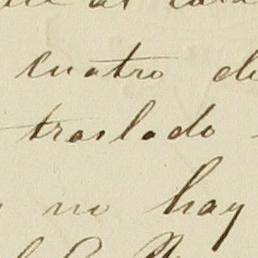 cuatro de
traslado
no hay